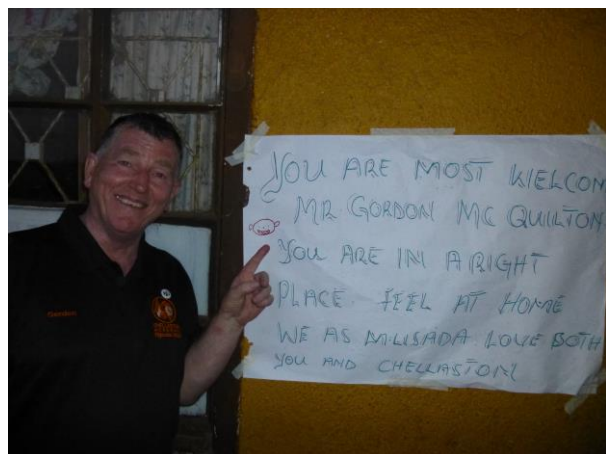 YOU ARE MOST WELCOM
MR GORDON MC QUILTON
YOU ARE IN A RIGHT
PLACE. FEEL AT HOME
WE AS MUSADA LOVE BOTH
YOU AND CHELLASTON!
Gordon